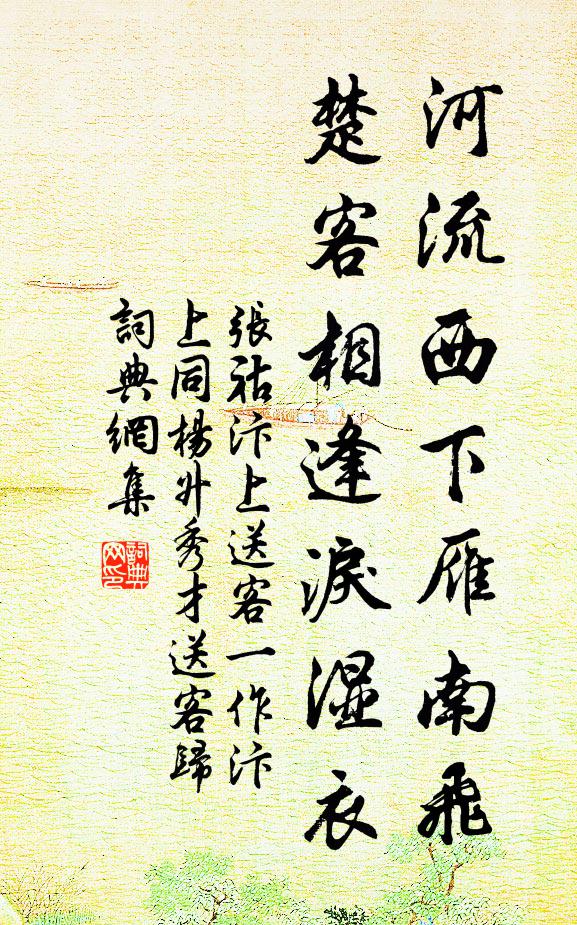 河流西下雁南飛
楚客相逢淚濕衣
張祜汴上送客一作汴
上同楊升秀才送客歸
詞典網集
詞典网印